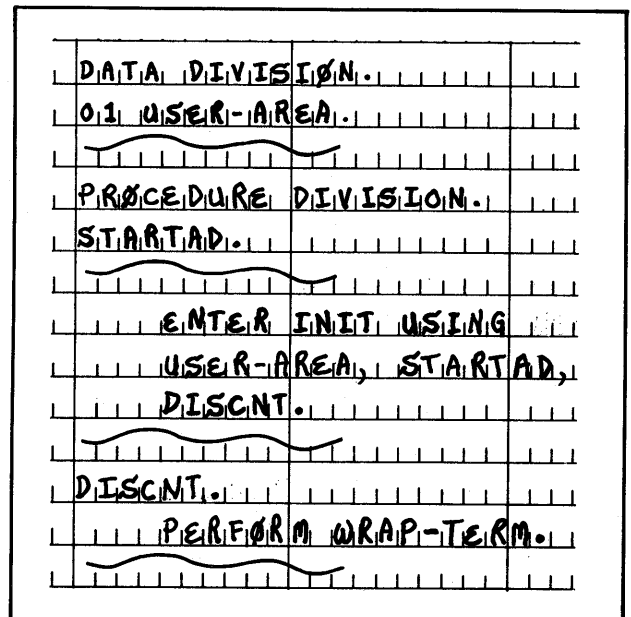 DATA DIVISIØN.
01 USER-AREA.
PRØCEDURE DIVISION.
STARTAD.
ENTER INIT USING
USER-AREA, STARTAD,
DISCNT.
DISCNT.
PERFØRM WRAP-TERM.